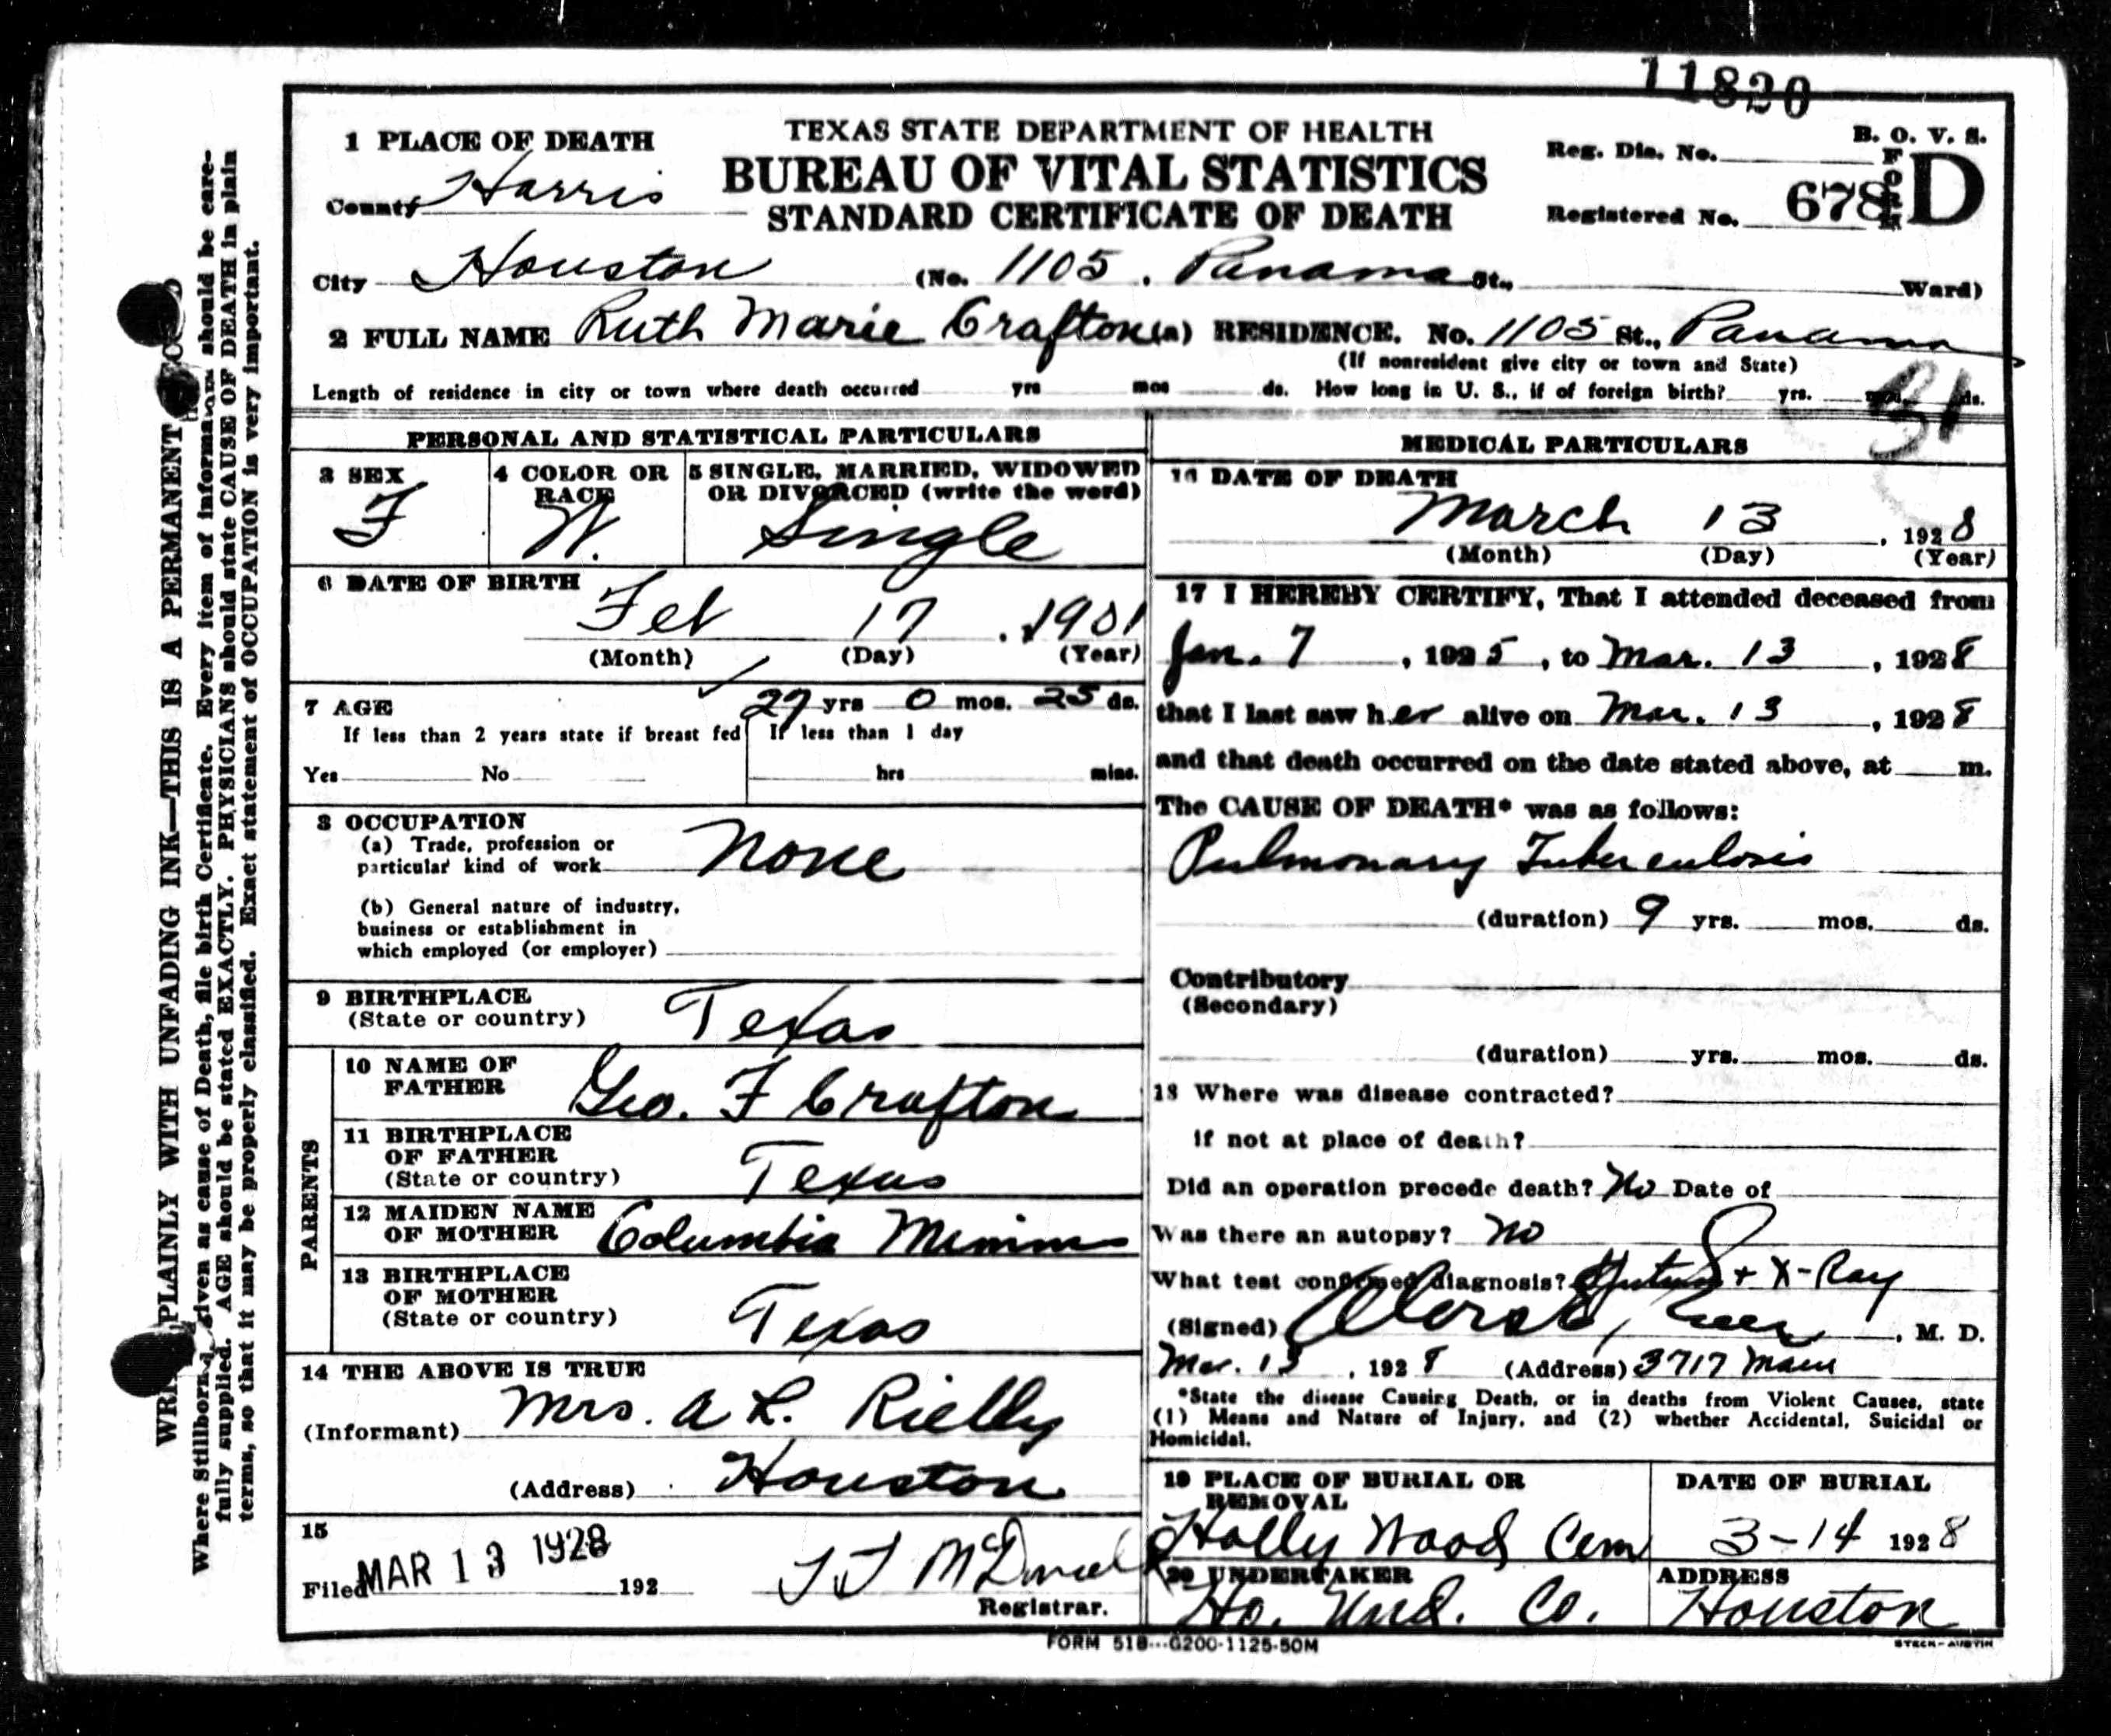 11820
TEXAS STATE DEPARTMENT OF HEALTH
BUREAU OF VITAL STATISTICS
STANDARD CERTIFICATE OF DEATH
B. O. V. S.
FORM D
Reg. Dis. No.
Registered No. 678
1 PLACE OF DEATH
County Harris
City Houston (No. 1105, Panama St., Ward)
2 FULL NAME Ruth Marie Crafton (a) RESIDENCE. No. 1105 St., Panama
(If nonresident give city or town and State)
Length of residence in city or town where death occurred yrs mos ds. How long in U. S., if of foreign birth? yrs. mos. ds.
31
PERSONAL AND STATISTICAL PARTICULARS
3 SEX
F
4 COLOR OR RACE
W.
5 SINGLE, MARRIED, WIDOWED
OR DIVORCED (write the word)
Single
6 DATE OF BIRTH
Feb 17, 1901
(Month) (Day) (Year)
7 AGE 27 yrs 0 mos. 25 ds.
If less than 2 years state if breast fed If less than 1 day
Yes No hrs mins.
8 OCCUPATION
(a) Trade, profession or
particular kind of work None
(b) General nature of industry,
business or establishment in
which employed (or employer)
9 BIRTHPLACE
(State or country) Texas
PARENTS
10 NAME OF
FATHER Geo. F Crafton
11 BIRTHPLACE
OF FATHER
(State or country) Texas
12 MAIDEN NAME
OF MOTHER Columbia Mimms
13 BIRTHPLACE
OF MOTHER
(State or country) Texas
14 THE ABOVE IS TRUE
(Informant) Mrs. A L. Rielly
(Address) Houston
15
Filed MAR 13 1928 192
Registrar.
MEDICAL PARTICULARS
16 DATE OF DEATH
March 13, 1928
(Month) (Day) (Year)
17 I HEREBY CERTIFY, That I attended deceased from
Jan. 7, 1925, to Mar. 13, 1928
that I last saw her alive on Mar. 13, 1928
and that death occurred on the date stated above, at m.
The CAUSE OF DEATH* was as follows:
Pulmonary Tuberculosis
(duration) 9 yrs. mos. ds.
Contributory
(Secondary)
(duration) yrs. mos. ds.
18 Where was disease contracted?
if not at place of death?
Did an operation precede death? No Date of
Was there an autopsy? No
What test confirmed diagnosis? Sputum + X-Ray
(Signed) , M. D.
Mar. 13, 1928 (Address) 3717 Main
*State the disease Causing Death, or in deaths from Violent Causes, state
(1) Means and Nature of Injury, and (2) whether Accidental, Suicidal or
Homicidal.
19 PLACE OF BURIAL OR
REMOVAL
Holly Wood Cem
DATE OF BURIAL
3-14 1928
20 UNDERTAKER
Ho. Und. Co.
ADDRESS
Houston
FORM 518---G200-1125-50M
STECK-AUSTIN
PLAINLY WITH UNFADING INK—THIS IS A PERMANENT
Where Stillborn, given as cause of Death, file birth Certificate. Every item of information should be care-
fully supplied. AGE should be stated EXACTLY. PHYSICIANS should state CAUSE OF DEATH in plain
terms, so that it may be properly classified. Exact statement of OCCUPATION is very important.